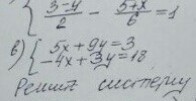 { (3-y)/2 - (5+x)/6 = 1
б) { 5x + 9y = 3
-4x + 3y = 18
Решите систему